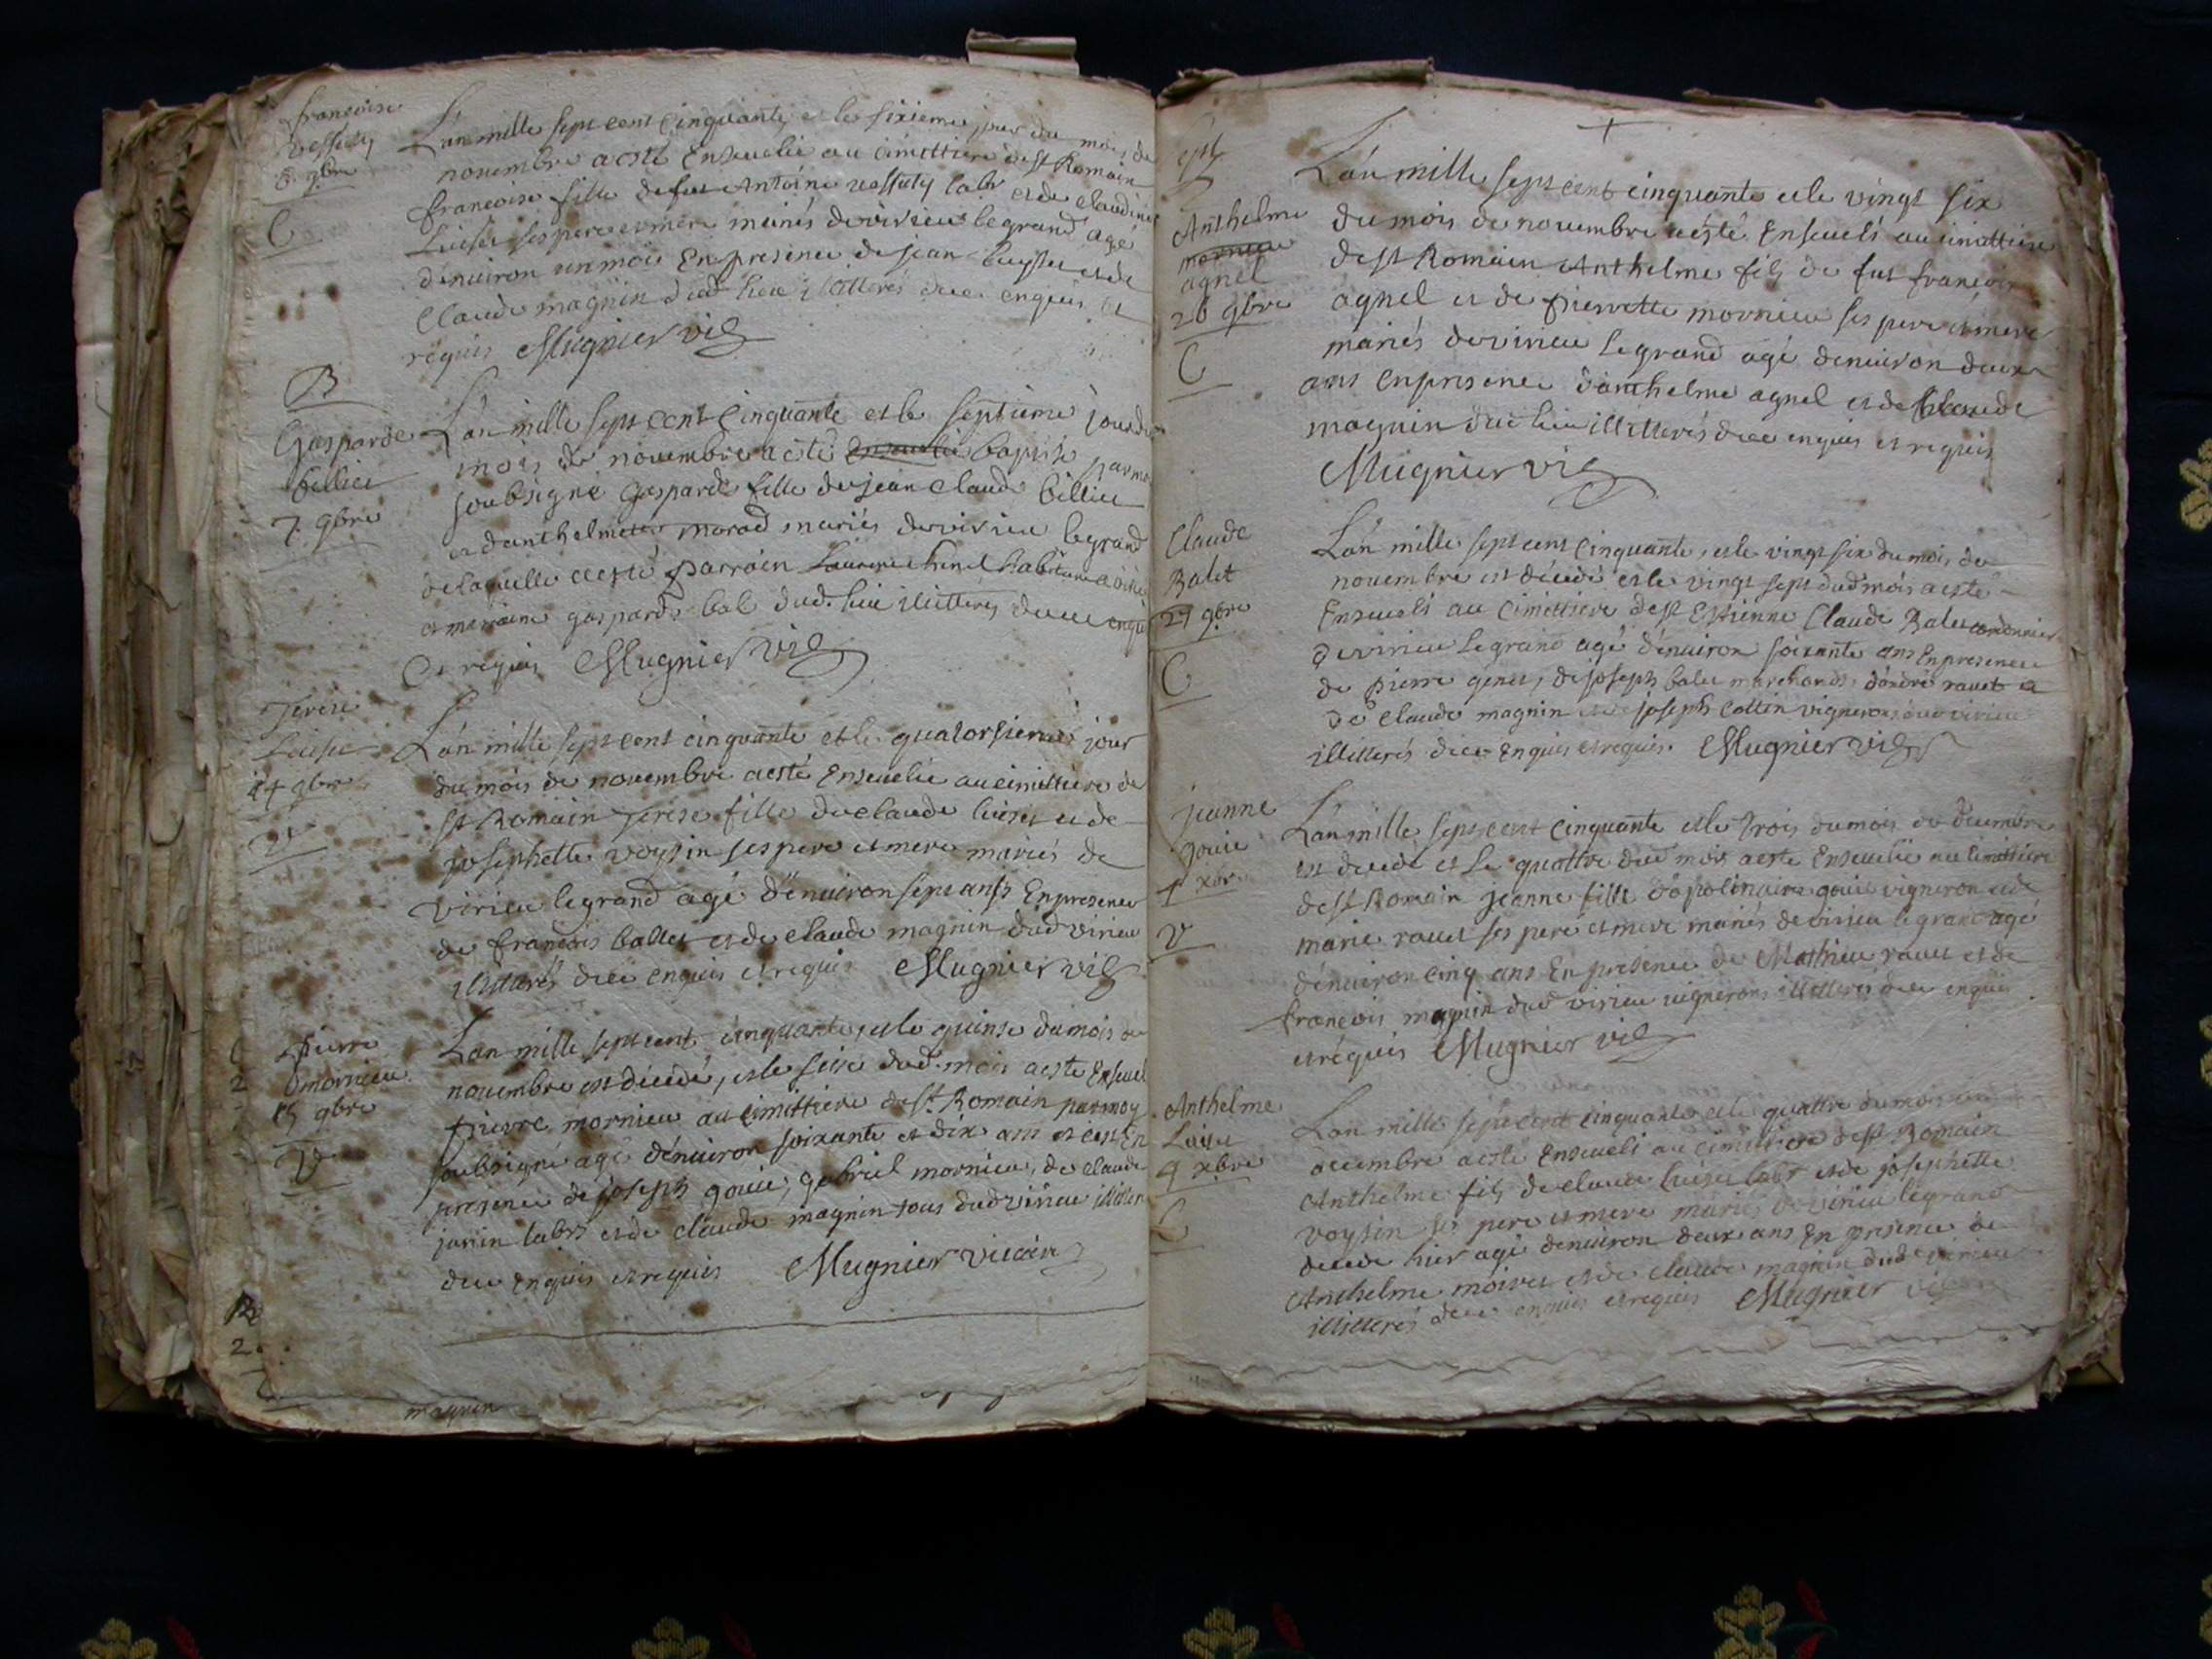 françoise
6 9bre
C
L'an mille sept cent cinquante, et le sixieme jour du mois de
novembre a esté Ensevelie au cimittiere de st Romain
françoise fille de fut Antoine labr et de Claudine
ses pere et mere mariés de virieu le grand agé
d'environ un moïs En presence de jean et de
Claude magnin dud lieu illitterés de ce enquis et
requis Mugnier vic
B
Gasparde
billiet
7 9bre
L'an mille sept cent Cinquante et le septieme jour du
mois de novembre a esté ensevelie baptisé par moy
soubsigné Gasparde fille de jean Claude billiet
et d'anthelmette morad mariés de virieu le grand
de laquelle a esté parrain
et marraine gasparde dud. lieu illitterés de ce enquis
Et requis Mugnier vic
Terese
14 9bre
V
L'an mille sept cent cinquante et le quatorsieme jour
du mois de novembre a esté Ensevelie au cimittiere de
st Romain Terese fille de claude et de
josephette voysin ses pere et mere mariés de
virieu le grand agé d'environ sept ans En presence
de françois ballet et de claude magnin dud virieu
illitterés de ce enquis et requis Mugnier vic
pierre
mornieu
15 9bre
V
L'an mille sept cent cinquante, et le quinse du mois de
novembre est décédé, et le seise dud. mois a esté Ensevel
pierre mornieu au Cimittiere de st Romain par moy
soubsigné agé d'environ soixante et dix ans et c'est En
presence de joseph gouie, gabriel mornieu, de claude
janin labrs et de claude magnin tous dud virieu illitter
de ce enquis et requis Mugnier vicaire
2
magnin
Anthelme
mornieu
agnel
26 9bre
C
L'an mille sept cent cinquante et le vingt six
du mois de novembre a esté Enseveli au cimittiere
de st Romain Anthelme fils de fut françois
agnel et de pierrette mornieu ses pere et mere
mariés de virieu le grand agé d'environ deux
ans En presence d'anthelme agnel et de Claude
magnin dud lieu illitterés de ce enquis et requis
Mugnier vic
Claude
Balet
27 9bre
C
L'an mille sept cent Cinquante, et le vingt six du mois de
novembre est décédé et le vingt sept dud mois a esté
Enseveli au Cimittiere de st Estienne Claude Balet cordonnier
de virieu le grand agé d'environ soixante ans En presence
de pierre genet, de joseph balet marchands, d'andré ravet et
de claude magnin et de joseph Cottin vignerons dud virieu
illitterés de ce Enquis et requis. Mugnier vic
jeanne
gouie
4 xbre
V
L'an mille sept cent Cinquante et le trois du mois de décembre
est décédé et le quattre dud mois a esté Ensevelie au cimittiere
de st Romain jeanne fille d'apolinaire gouie vigneron et de
marie ravet ses pere et mere mariés de virieu le grand agé
d'environ cinq ans En presence de Mathieu ravet et de
françois magnin dud virieu vignerons illitterés de ce enquis
et requis Mugnier vic
Anthelme
4 xbre
C
L'an mille sept cent cinquante et le quattre du mois de
decembre a esté Enseveli au cimittiere de st Romain
Anthelme fils de claude labr et de josephette
voysin ses pere et mere mariés de virieu le grand
decedé hier agé d'environ deux ans En presence de
Anthelme et de claude magnin dud virieu
illitterés de ce enquis et requis Mugnier vic